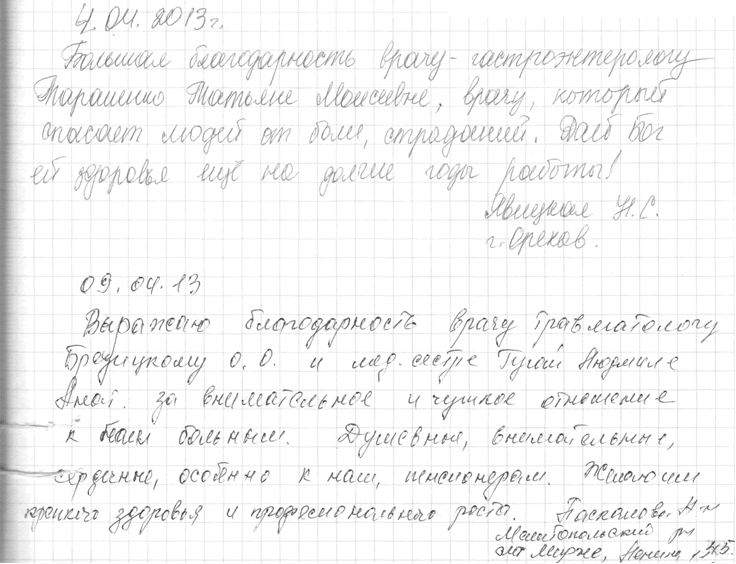 4.04.2013г.
Большая благодарность врачу-гастроэнтерологу
Тарашенко Татьяне Моисеевне, врачу, который
спасает людей от боли, страданий. Дай Бог
ей здоровья ещё на долгие годы работы!
Явицкая Н.С.
г. Орехов.
09.04.13
Выражаю благодарность врачу травматологу
О.О. и мед. сестре Гугай Людмиле
Анат. за внимательное и чуткое отношение
к больным. Душевные, внимательные,
сердечные, особенно к нам, пенсионерам. Желаю им
крепкого здоровья и професионального роста. Паскалова
Мелитопольский рн
Мирне, Ленина